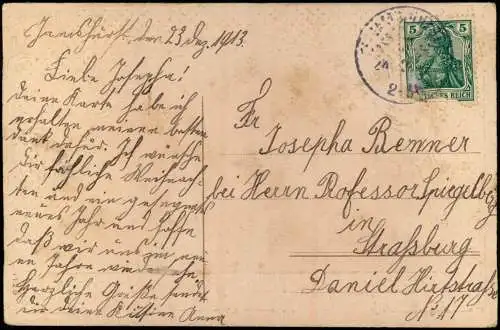 den 23 Dez. 1913.
Liebe Josepha!
Deine Karte habe ich
erhalten meinen besten
Dank dafür. Ich wünsche
Dir fröhliche Weihnach-
ten und ein gesegnetes
neues Jahr und hoffe
daß wir uns im neu
en Jahre
Herzliche Grüße sendet
dir Deine Anna
5
DEUTSCHES REICH
Fr
Josepha Bemner
bei Herrn Professor Spiegelbg
in
Straßburg
Daniel Hirtstraße
No. 17